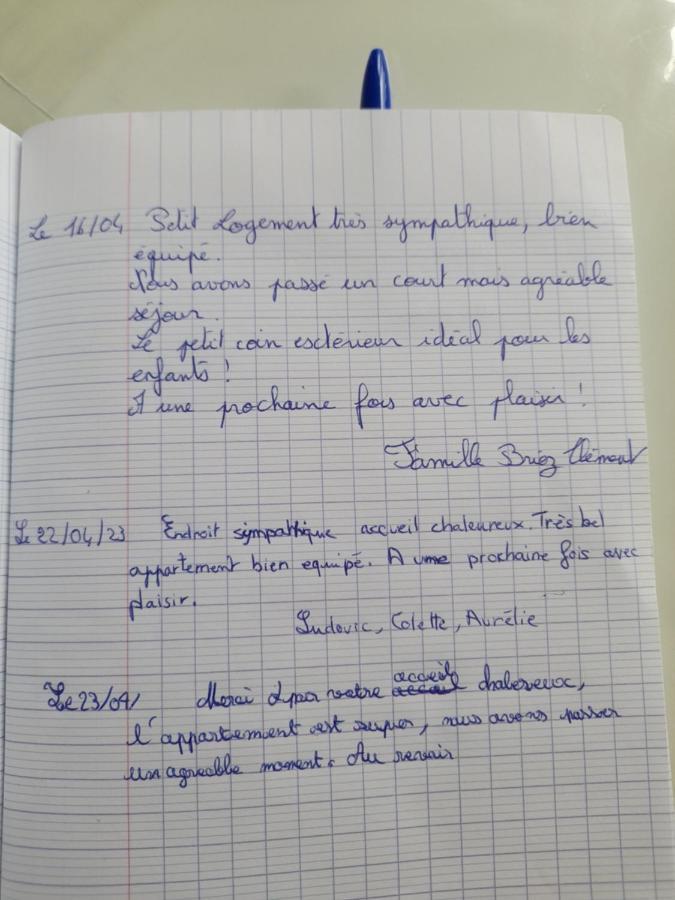 Le 16/04 Petit Logement très sympathique, bien
équipé.
Nous avons passé un court mais agréable
séjour.
Le petit coin esctérieur idéal pour les
enfants !
A une prochaine fois avec plaisir !
Famille Briez Clément
Le 22/04/23 Endroit sympathique accueil chaleureux. Très bel
appartement bien equipé. A une prochaine fois avec
plaisir.
Ludovic, Colette, Aurélie
Le 23/04/ Merci pour votre accueil chalereux,
l'appartement est super, nous avons passer
un agreable moment. Au revoir